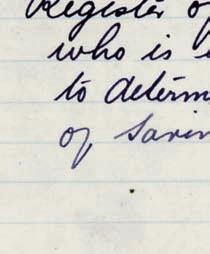 Register of
who is
to determ
of Savin